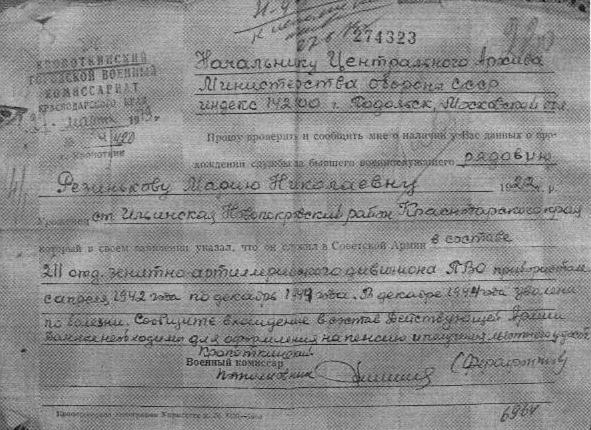 КРОПОТКИНСКИЙ
ГОРОДСКОЙ ВОЕННЫЙ
КОМИССАРИАТ
КРАСНОДАРСКОГО КРАЯ
г. Кропоткин
274323
Начальнику Центрального Архива
Министерства обороны СССР
индекс 142100 г. Подольск, Московской обл.
Прошу проверить и сообщить мне о наличии у Вас данных о про-
хождении службы за бывшего военнослужащего рядовую
Резинькову Марию Николаевну 1922 г. р.
ст. Ильинская Новопокровский район Краснодарского края
который в своем заявлении указал, что он служил в Советской Армии в составе
211 отд. зенитно-артиллерийского дивизиона ПВО
с апреля 1942 года по декабрь 1944 года. В декабре 1944 года уволена
по болезни. Сообщите вхождение в состав действующей армии
необходимо для оформления на пенсию и получения льготного
Кропоткинский
Военный комиссар
подполковник
6964